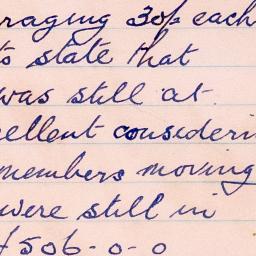 raging 30/- each
to state that
was still at
cellent consideri
members moving
were still in
£506-0-0